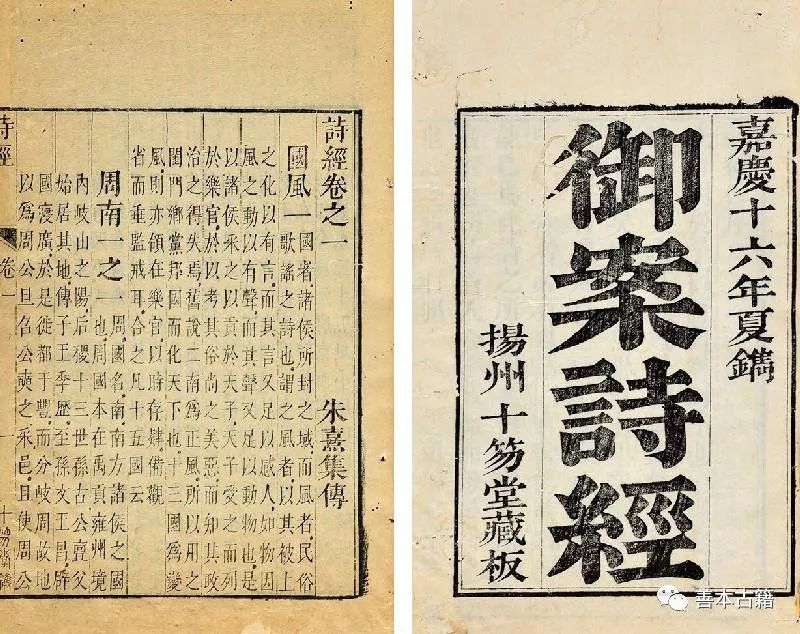 嘉慶十六年夏鐫
御案詩經
揚州十笏堂藏板
詩經卷之一 朱熹集傳
國風一 國者諸侯所封之域而風者民俗
歌謠之詩也謂之風者以其被上
之化以有言而其言又足以感人如物因
風之動以有聲而其聲又足以動物也是
以諸侯采之以貢於天子天子受之而列
於樂官於以考其俗尚之美惡而知其政
治之得失焉舊說二南爲正風所以用之
閨門鄉黨邦國而化天下也十三國爲變
風則亦領在樂官以時存肄備觀
省而垂監戒耳合之凡十五國云
周南一之一 周國名南南方諸侯之國
也周國本在禹貢雍州境
內岐山之陽后稷十三世孫古公亶父
始居其地傳子王季歷至孫文王昌辟
國寖廣於是徙都于豐而分岐周故地
以爲周公旦召公奭之采邑且使周公
詩經 卷一
善本古籍